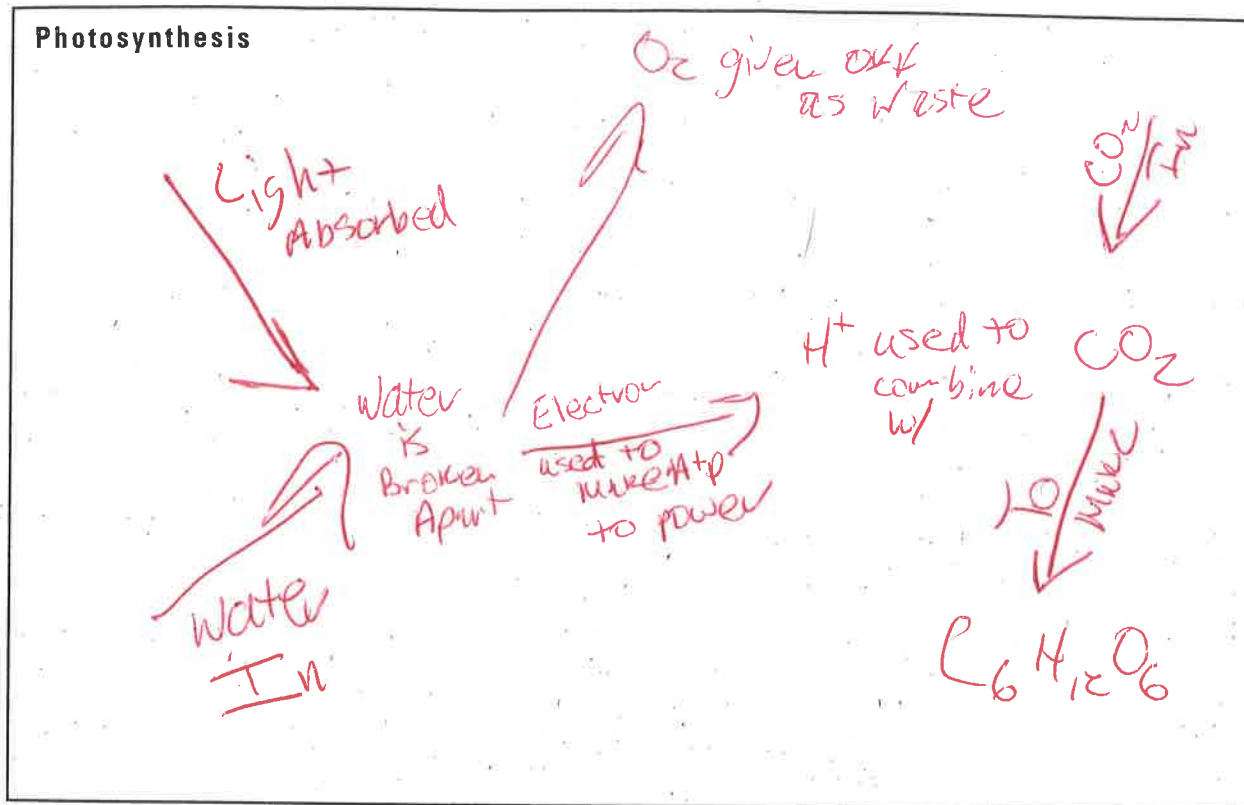 Photosynthesis
O₂ given off
as waste
Light
Absorbed
CO₂
In
Water
is
Broken
Apart
Electron
used to
make Atp
to power
H⁺ used to
combine
w/
CO₂
To
Make
Water
In
C₆H₁₂O₆